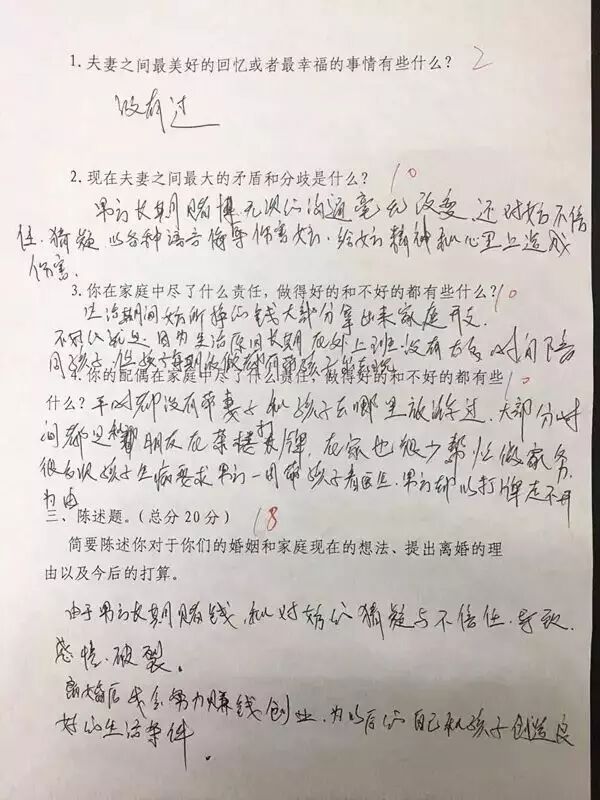 1.夫妻之间最美好的回忆或者最幸福的事情有些什么？ 2
没有过
2.现在夫妻之间最大的矛盾和分歧是什么？ 10
男方长期赌博，无次的沟通毫无改变，还对女方不信
任，猜疑 以各种语言侮辱伤害女方，给女方精神和心里上造成
伤害。
3.你在家庭中尽了什么责任，做得好的和不好的都有些什么？ 10
生活期间女方所挣的钱大部分拿出来家庭开支。
不好的就是因为生活原因长期在外上班没有太多时间陪
同孩子，
4.你的配偶在家庭中尽了什么责任，做得好的和不好的都有些 10
什么？平时都没有带妻子和孩子去哪里放游过，大部分时
间都是和朋友在茶楼打牌，在家也很少帮忙做家务，
孩子生病要求男方一同带孩子看医生，男方却以打牌走不开
为由
三、陈述题。（总分20分） 18
简要陈述你对于你们的婚姻和家庭现在的想法、提出离婚的理
由以及今后的打算。
由于男方长期赌钱，和对女方的猜疑与不信任，导致
感情破裂。
离婚后我会努力赚钱创业，为以后的自己和孩子创造良
好的生活条件。